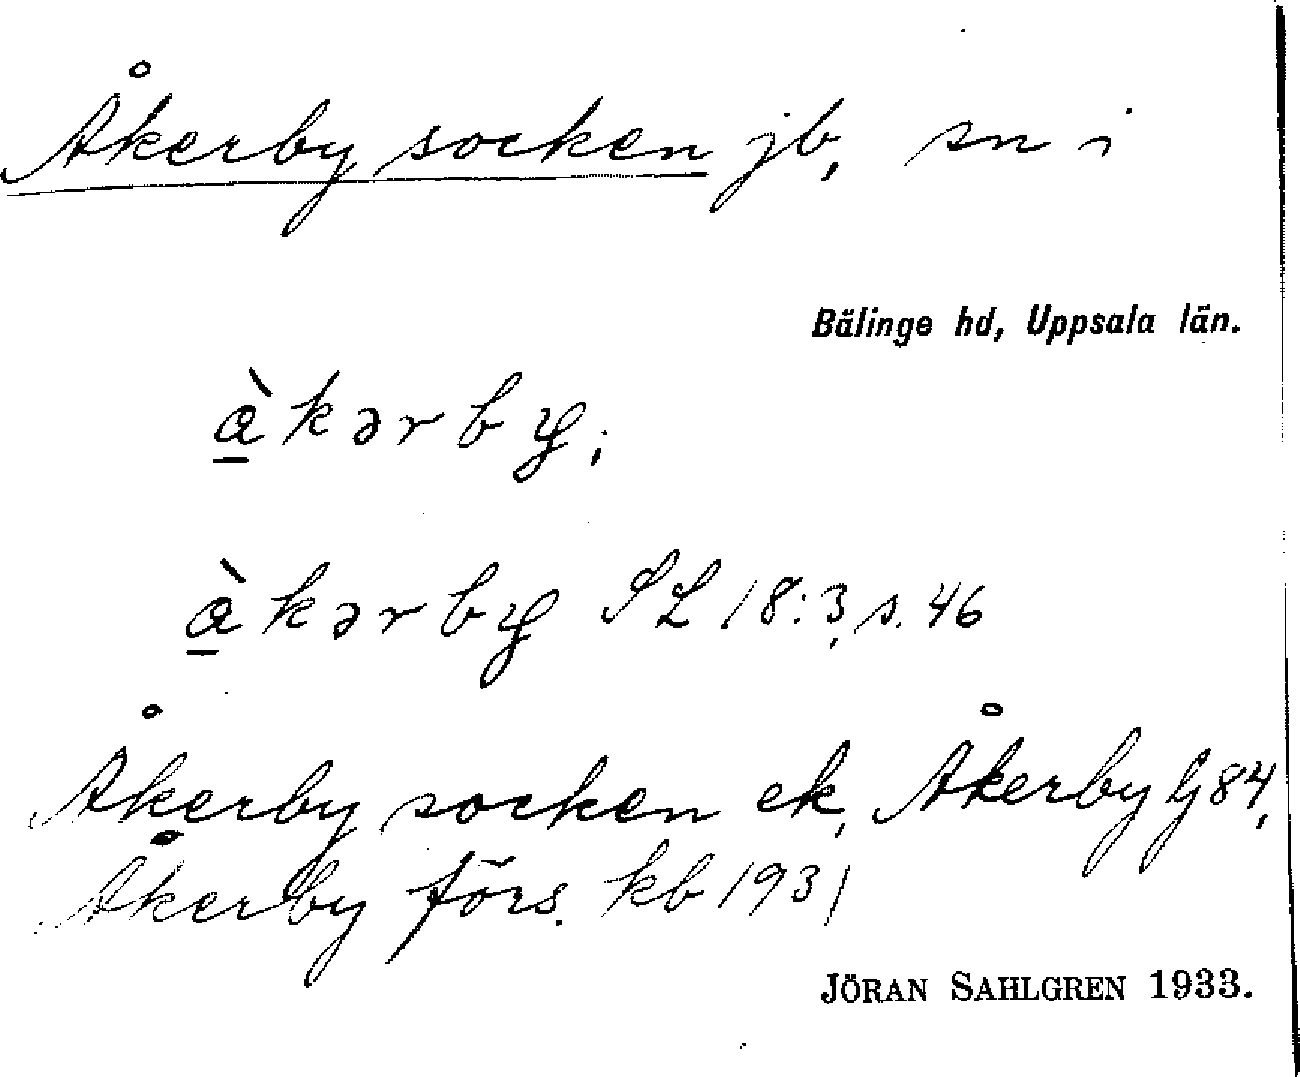 Åkerby socken jb, sn i
Bälinge hd, Uppsala län.
å̠̀kərby;
å̠̀kərby SL 18:3, s. 46
Åkerby socken ek, Åkerby G84,
Åkerby förs. kb 1931
JÖRAN SAHLGREN 1933.